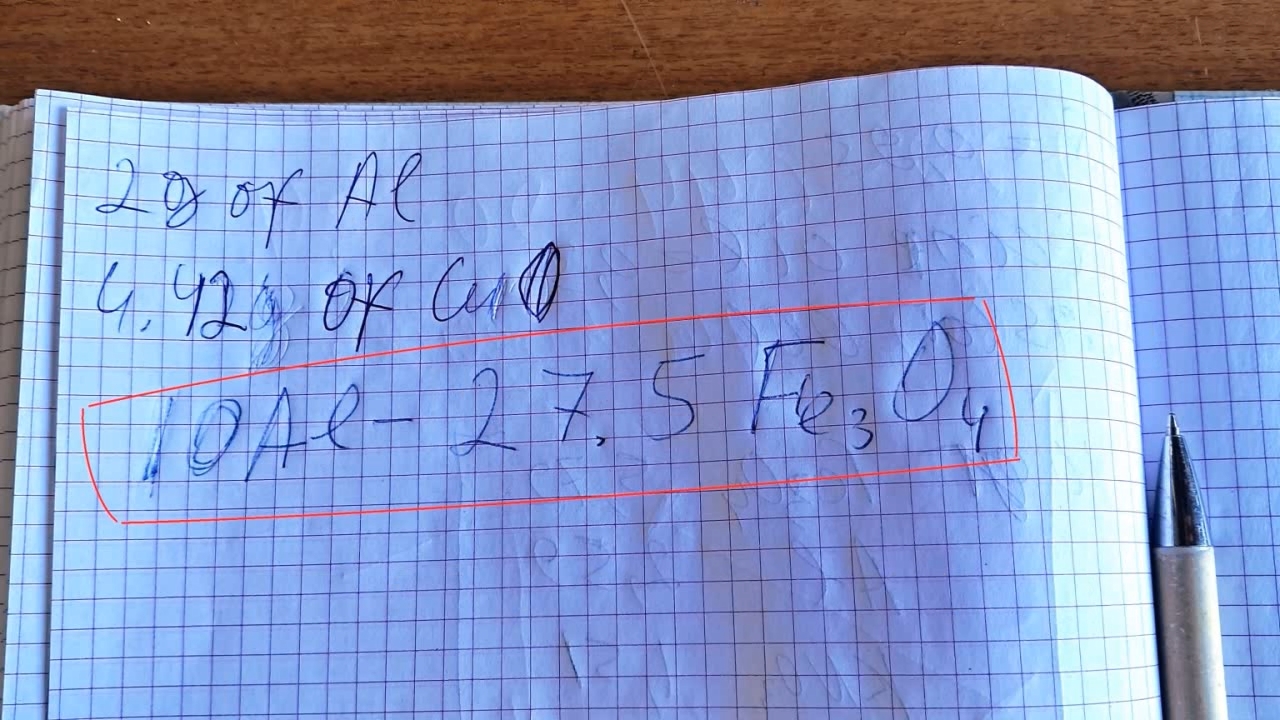 2g of Al
4.42g of CuO
10Al - 27.5 Fe₃O₄